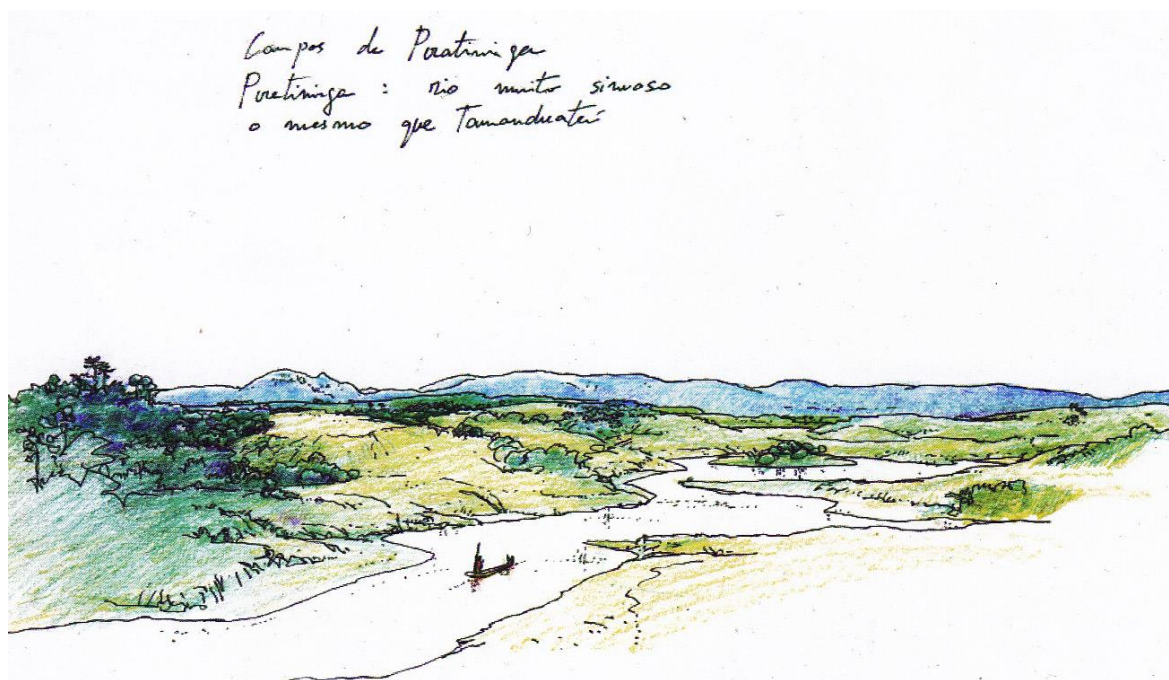 Campos de Piratininga
Piratininga : rio muito sinuoso
o mesmo que Tamanduateí